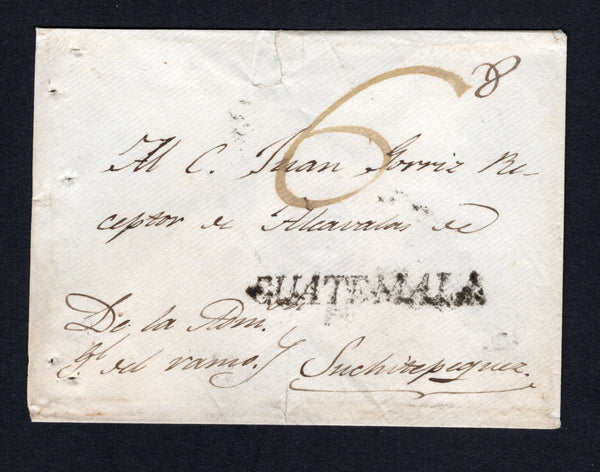 8
6
Al C. Juan Gorriz Re-
ceptor de Alcavalas de
GUATEMALA
De la Admon
Gl del ramo.
Suchitepequez.